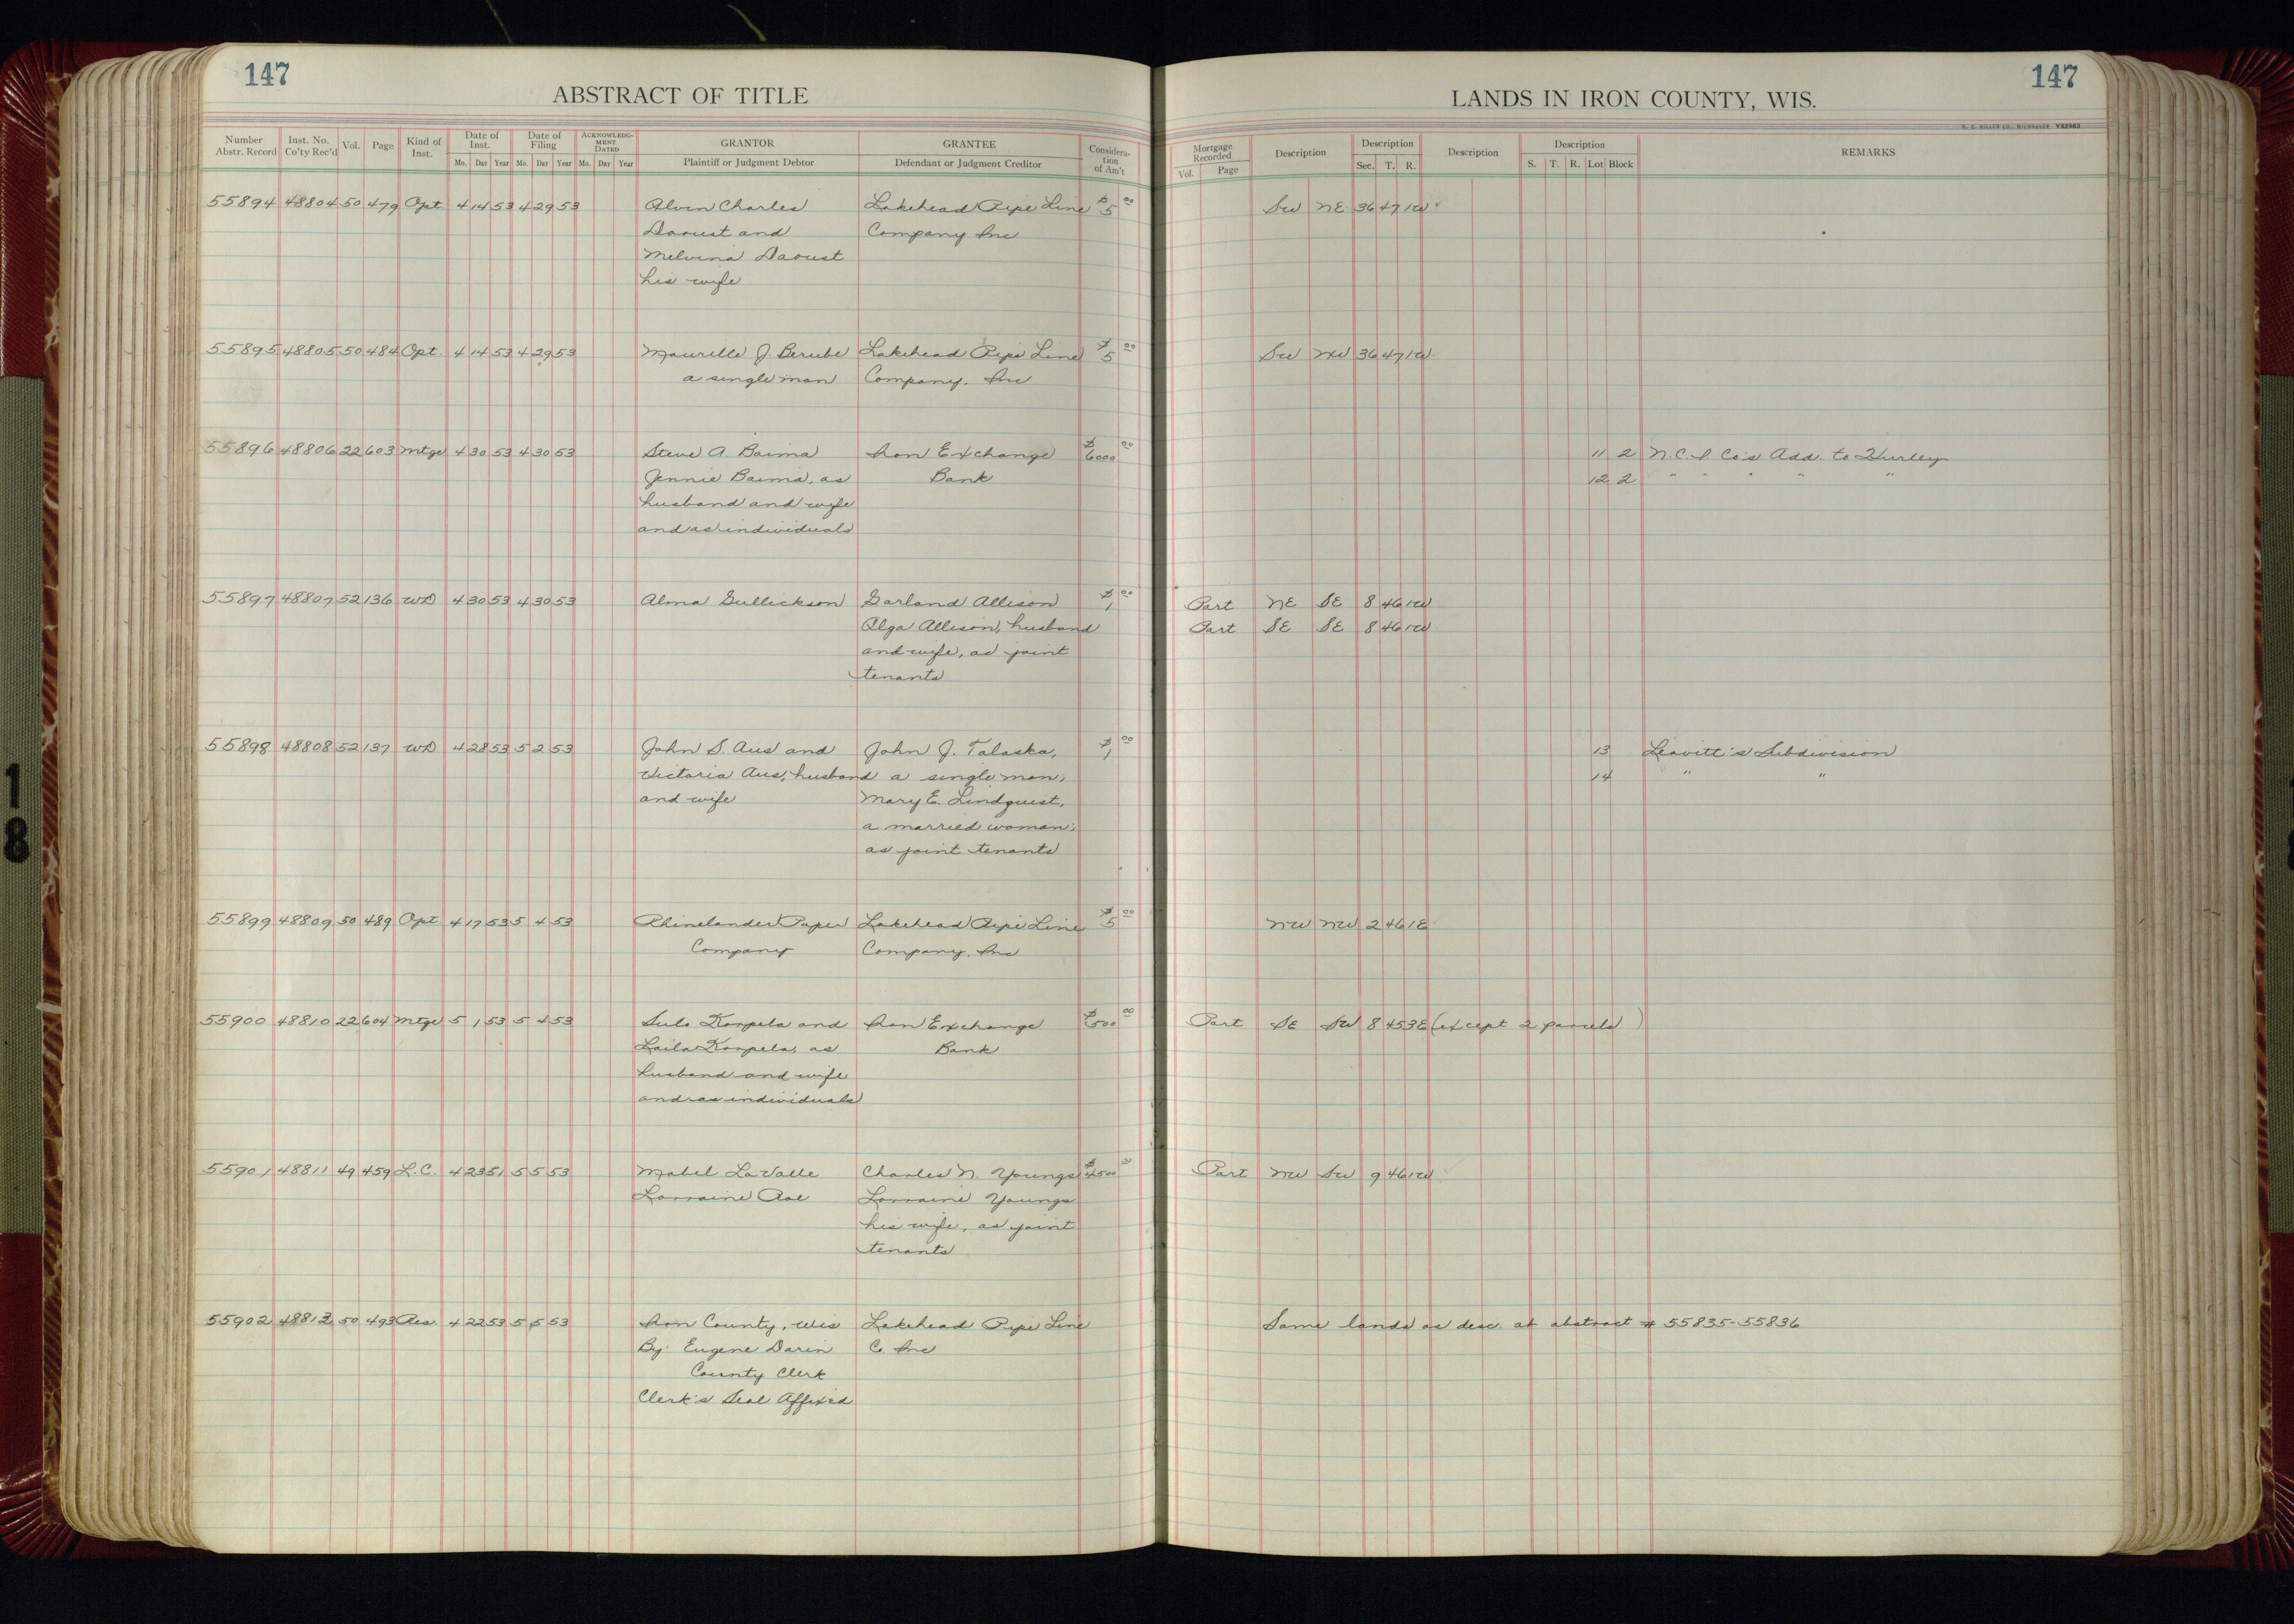 147
ABSTRACT OF TITLE
Number Abstr. Record Inst. No. Co'ty Rec'd Vol. Page Kind of Inst. Date of Inst. Mo. Day Year Date of Filing Mo. Day Year Acknowledgment Dated Mo. Day Year GRANTOR Plaintiff or Judgment Debtor GRANTEE Defendant or Judgment Creditor Consideration of Am't
147
LANDS IN IRON COUNTY, WIS.
Mortgage Recorded Vol. Page Description Description Sec. T. R. Description Description S. T. R. Lot Block REMARKS
55894 48804 50 479 Opt. 4 14 53 4 29 53 Alvin Charles Lakehead Pipe Line $5 00 SW NE 36 47 1W
Daoust and Company Inc
Melvina Daoust
his wife
55895 48805 50 484 Opt. 4 14 53 4 29 53 Maurille J. Berube Lakehead Pipe Line $5 00 SW NW 36 47 1W
a single man Company. Inc
55896 48806 22 603 Mtge 4 30 53 4 30 53 Steve A. Baima Iron Exchange $6000 00 11 2 N.C.I Co's Add. to Hurley
Jennie Baima, as Bank 12 2 " " " " "
husband and wife
and as individuals
55897 48807 52 136 WD 4 30 53 4 30 53 Alma Gullickson Garland Allison $1 00 Part NE SE 8 46 1W
Olga Allison, husband Part SE SE 8 46 1W
and wife, as joint
tenants
55898 48808 52 137 WD 4 28 53 5 2 53 John S. Aus and John J. Talaska, $1 00 13 Leavitt's Subdivision
Victoria Aus, husband a single man; 14 " "
and wife Mary E. Lindquist,
a married woman;
as joint tenants
55899 48809 50 489 Opt 4 17 53 5 4 53 Rhinelander Paper Lakehead Pipe Line $5 00 NW NW 2 46 1E
Company Company. Inc
55900 48810 22 604 Mtge 5 1 53 5 4 53 Sulo Korpela and Iron Exchange $500 00 Part SE SW 8 45 3E (except 2 parcels)
Laila Korpela, as Bank
husband and wife
and as individuals
55901 48811 49 459 L.C. 4 23 51 5 5 53 Mabel LaValle Charles N. Youngs $4500 Part NW SW 9 46 1W
Lorraine Lorraine Youngs
his wife, as joint
tenants
55902 48812 50 493 Res 4 22 53 5 5 53 Iron County, Wis Lakehead Pipe Line Same lands as desc. at abstract # 55835-55836
By Eugene Darin Co. Inc
County Clerk
Clerk's Seal Affixed
18